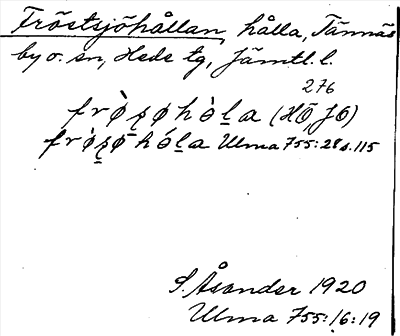 Fröstsjöhållan, hålla, Tännäs
by o. sn, Hede tg, Jämtl. l.
276
frò̀ʂøhòḷa (HÖ, JÖ)
frø̀ʂø̄hóḷa Ulma 755:28 s. 115
S. Åsander 1920
Ulma 755:16:19